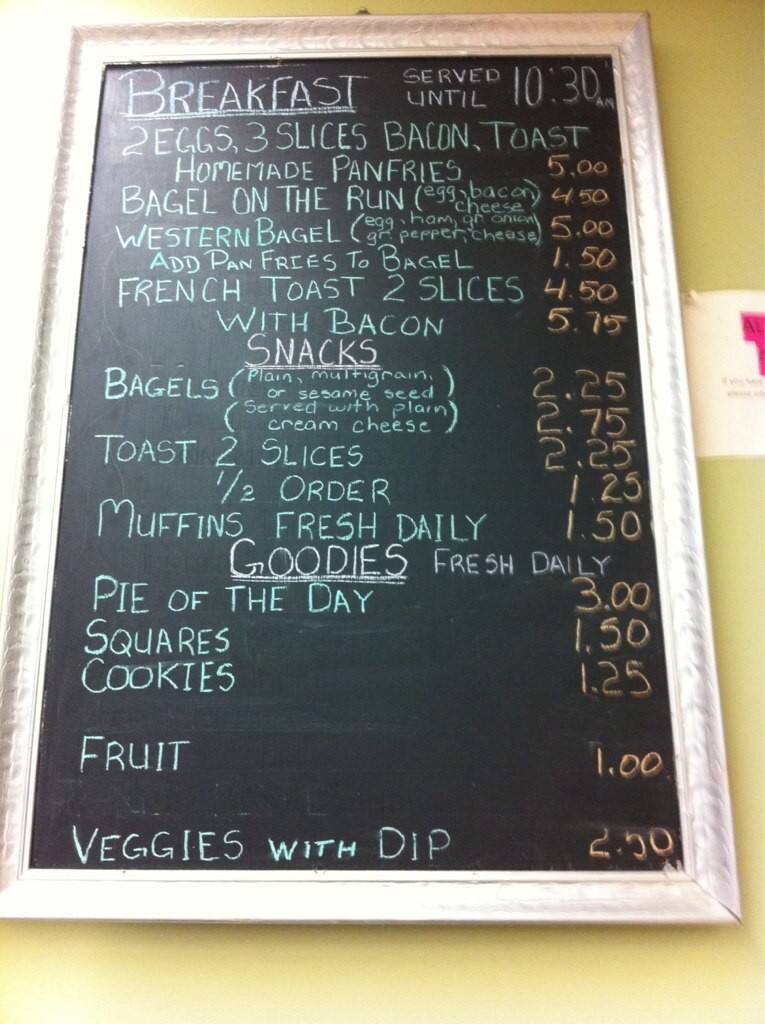 BREAKFAST SERVED UNTIL 10:30 AM
2 EGGS, 3 SLICES BACON, TOAST
HOMEMADE PANFRIES 5.00
BAGEL ON THE RUN (egg, bacon, cheese) 4.50
WESTERN BAGEL (egg, ham, gr onion, gr, pepper, cheese) 5.00
ADD PAN FRIES TO BAGEL 1.50
FRENCH TOAST 2 SLICES 4.50
WITH BACON 5.75
SNACKS
BAGELS (Plain, multigrain, or sesame seed) 2.25
(Served with plain cream cheese) 2.75
TOAST 2 SLICES 2.25
1/2 ORDER 1.25
MUFFINS FRESH DAILY 1.50
GOODIES FRESH DAILY
PIE OF THE DAY 3.00
SQUARES 1.50
COOKIES 1.25
FRUIT 1.00
VEGGIES WITH DIP 2.50